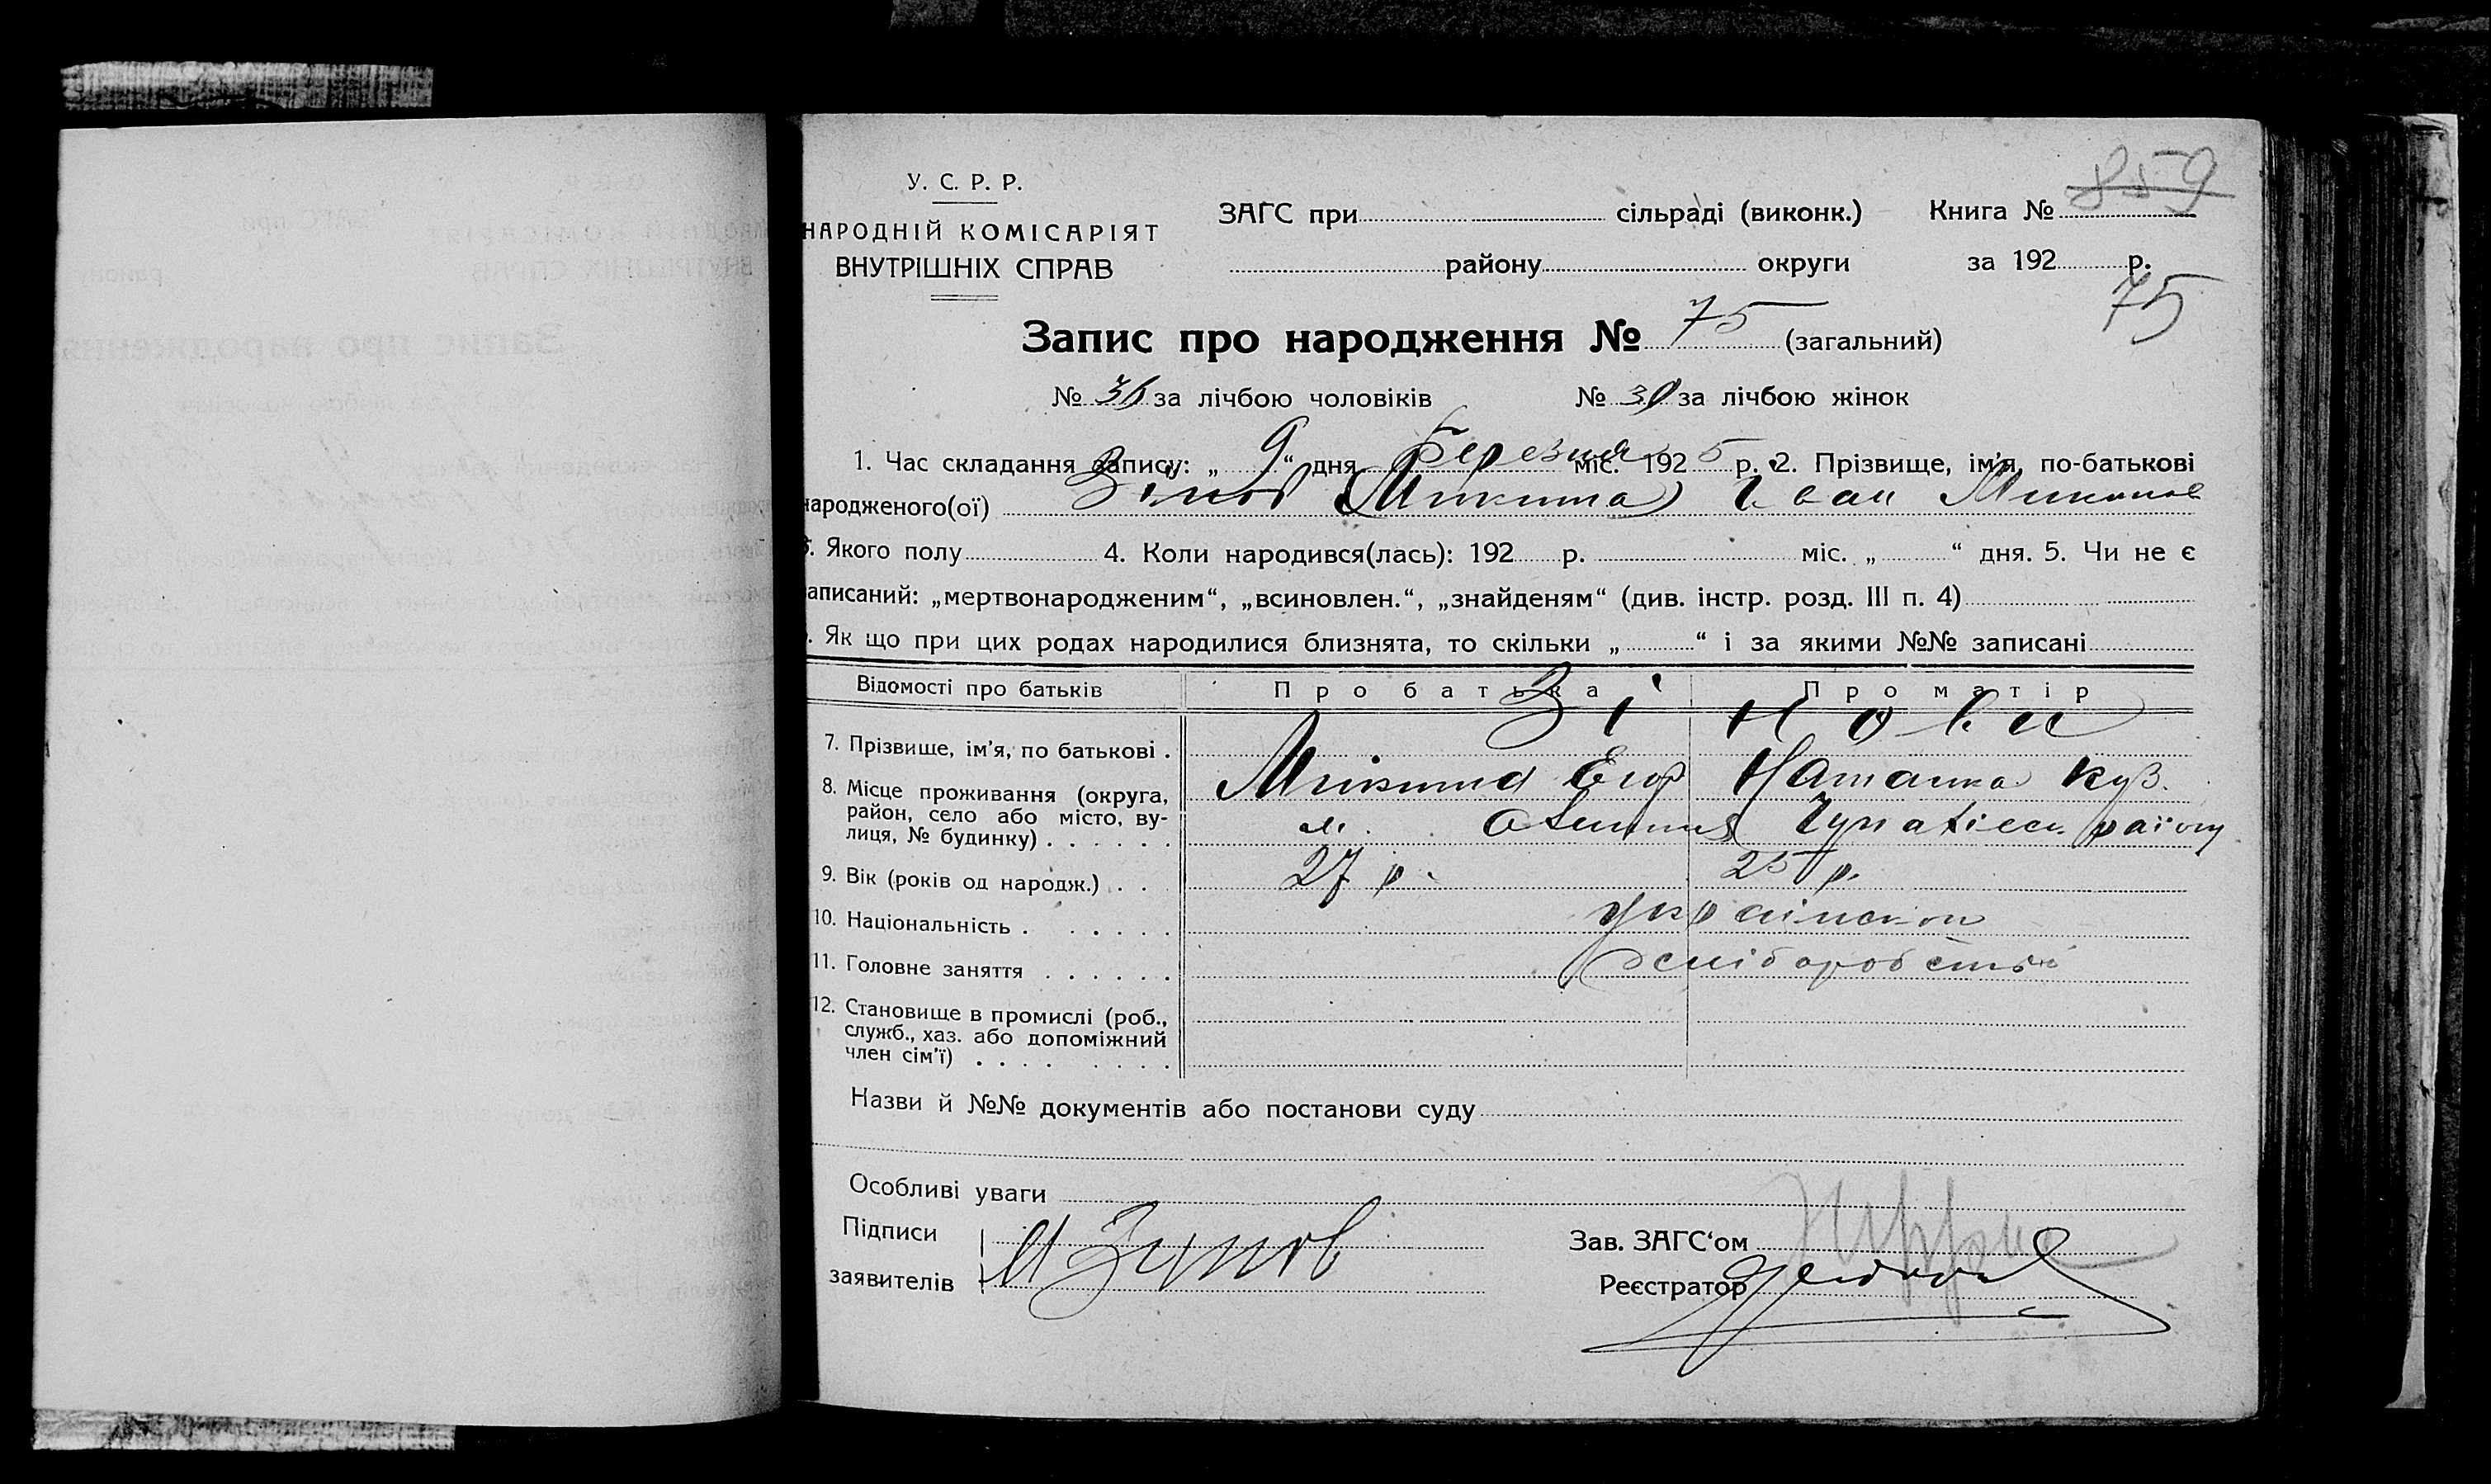 859
У. С. Р. Р.
НАРОДНІЙ КОМІСАРІЯТ
ВНУТРІШНІХ СПРАВ
ЗАГС при сільраді (виконк.) Книга №
району округи за 192 р.
75
Запис про народження № 75 (загальний)
№ 36 за лічбою чоловіків № 39 за лічбою жінок
1. Час складання запису: „ 9 “ дня Березня міс. 192 5 р. 2. Прізвище, ім'я, по-батькові
народженого(ої) Зінов Микита Іван
3. Якого полу 4. Коли народився(лась): 192 р. міс. „ “ дня. 5. Чи не є
записаний: „мертвонародженим“, „всиновлен.“, „знайденям“ (див. інстр. розд. III п. 4)
. Як що при цих родах народилися близнята, то скільки „ “ і за якими №№ записані
Відомості про батьків Про батька Про матір
Зінови
7. Прізвище, ім'я, по батькові .
Микита Егор Наталка Куз.
8. Місце проживання (округа,
район, село або місто, вулиця, № будинку) . . . . . .
району
9. Вік (років од народж.) . . . 27 р. 25 р.
10. Національність . . . . . .
11. Головне заняття . . . . . .
12. Становище в промислі (роб.,
служб., хаз. або допоміжний
член сім'ї) . . . . . . . .
Назви й №№ документів або постанови суду
Особливі уваги
Підписи
заявителів
Зинов
Зав. ЗАГС‘ом
Реєстратор